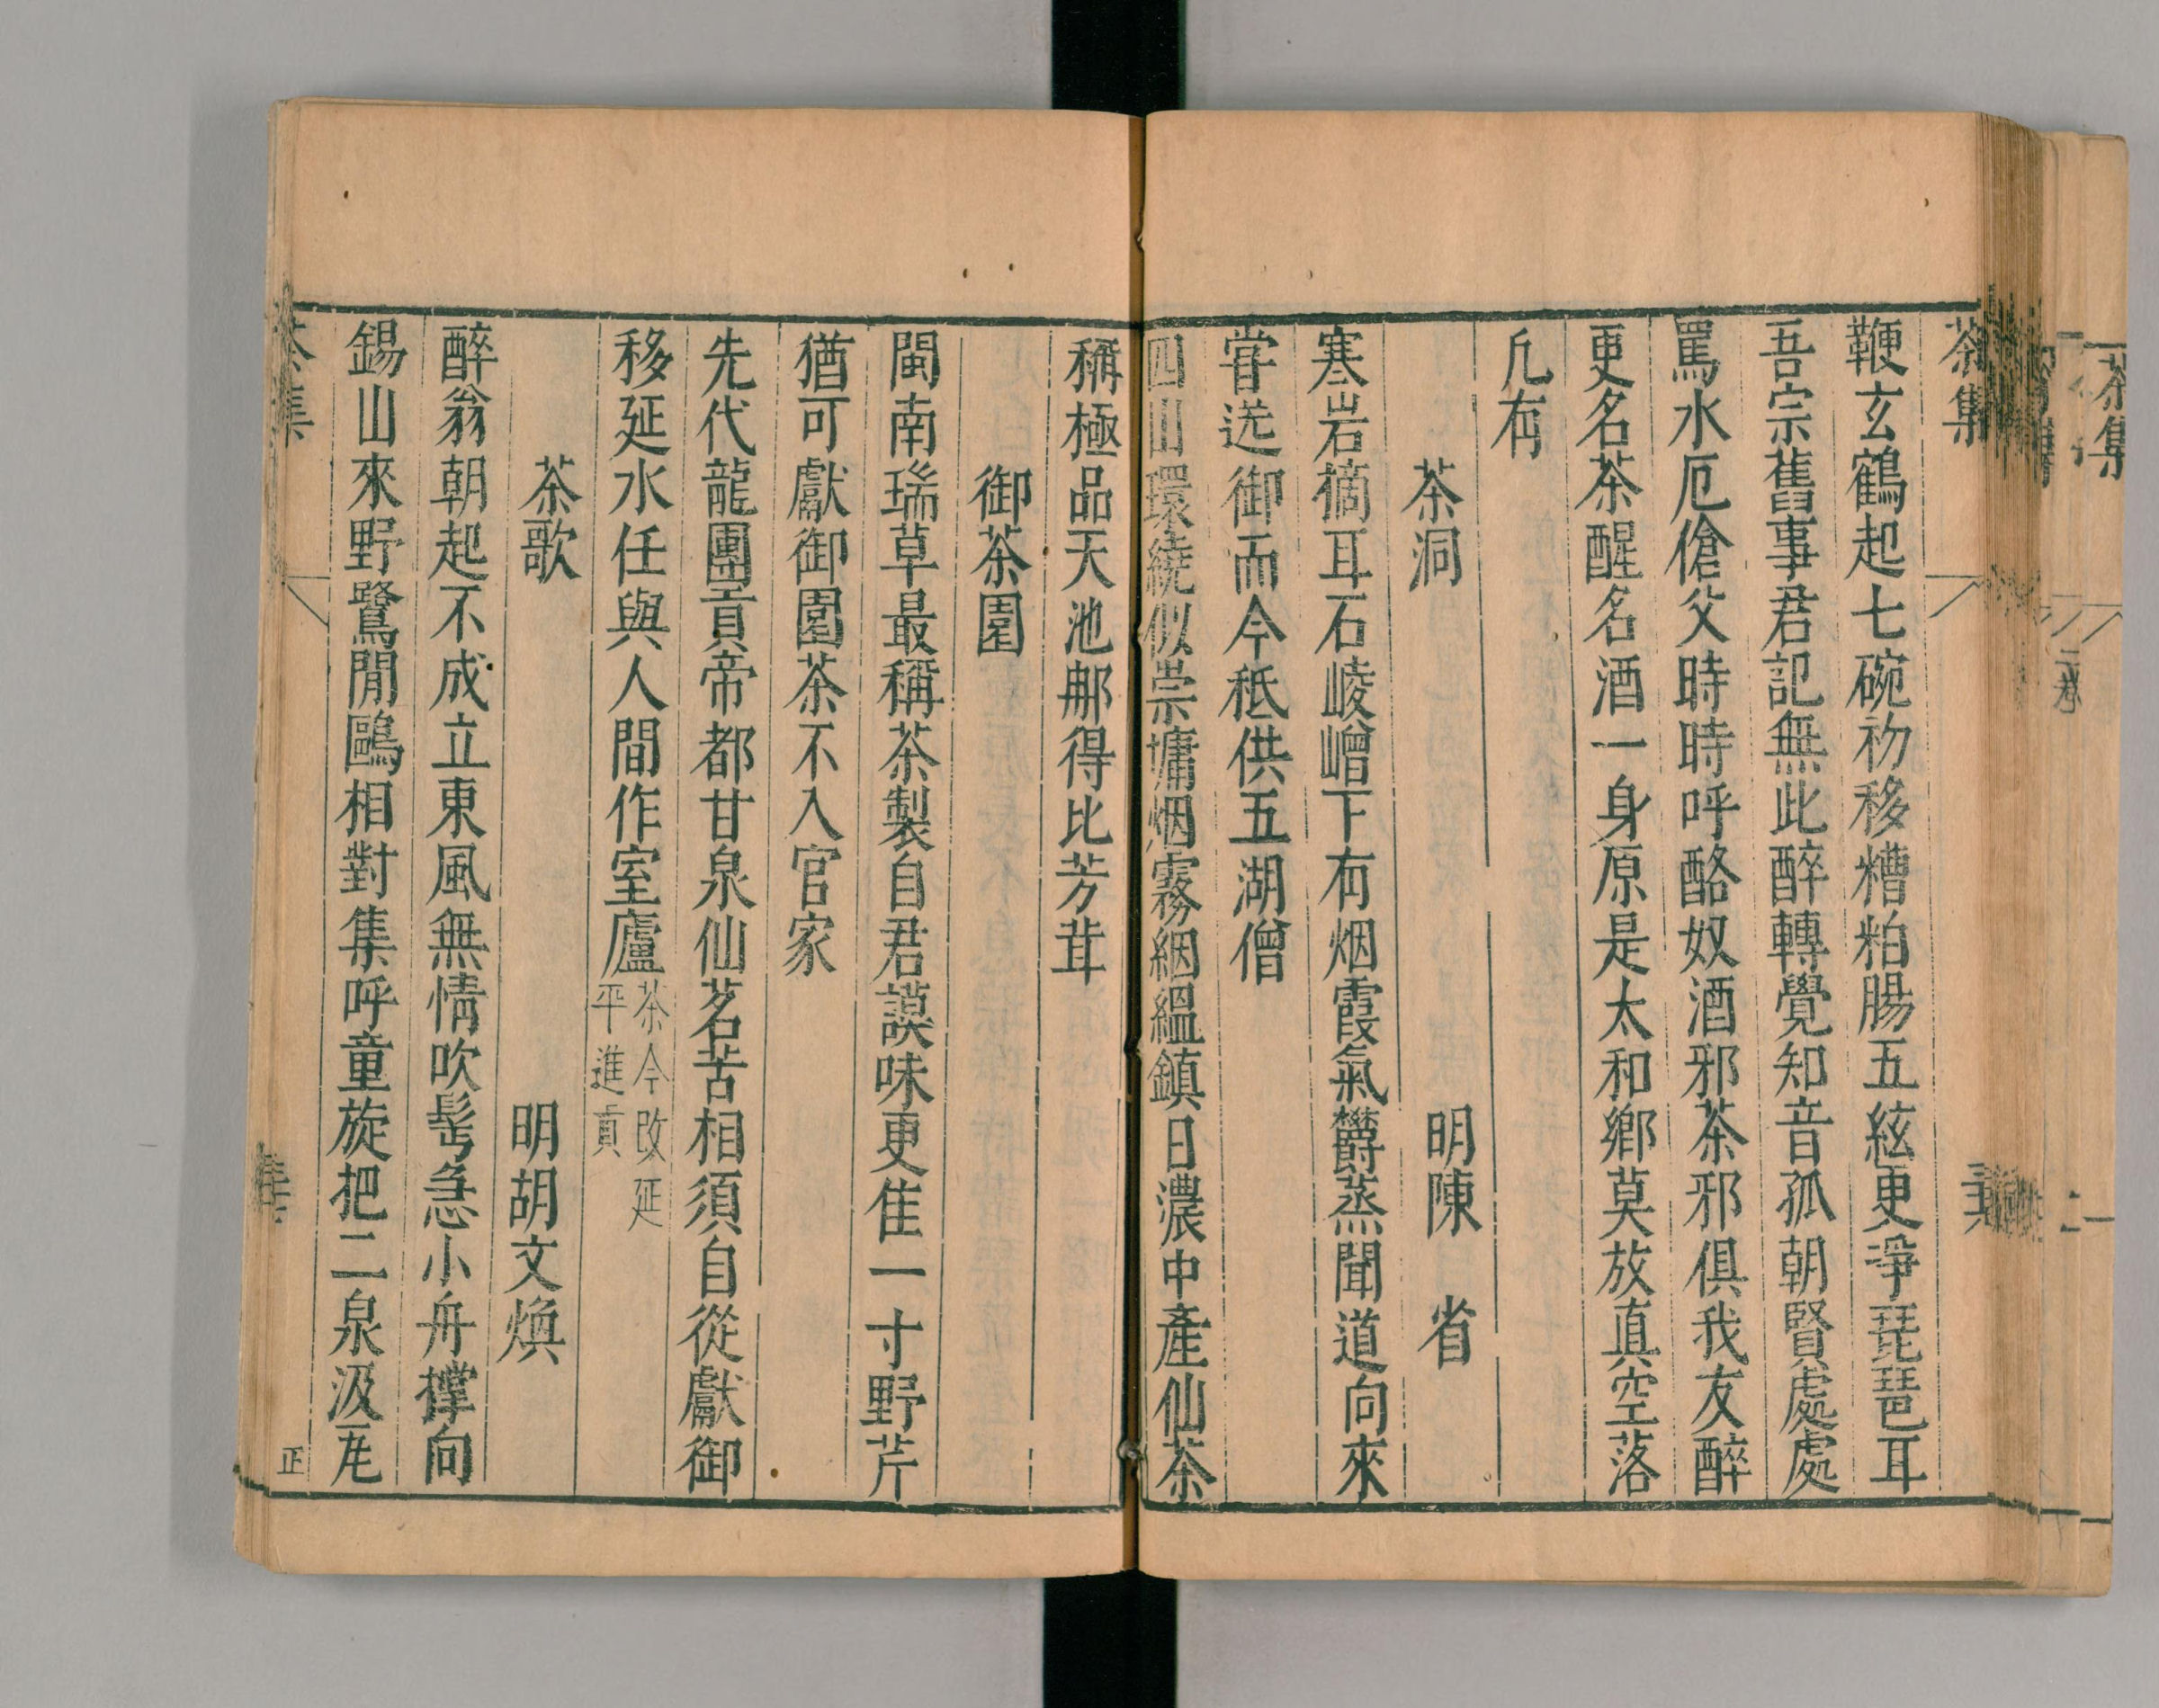 茶集
鞭玄鶴起七碗初移糟粕腸五絃更爭琵琶耳
吾宗舊事君記無此醉轉覺知音孤朝賢處處
罵水厄傖父時時呼酪奴酒邪茶邪俱我友醉
更名茶醒名酒一身原是太和鄉莫放真空落
凢有
茶洞 明陳 省
寒岩摘耳石崚嶒下有烟霞氣欝蒸聞道向來
嘗送御而今秪供五湖僧
四山環繞似崇墉烟霧絪縕鎮日濃中產仙茶
稱極品天池那得比芳茸
御茶園
閩南瑞草最稱茶製自君謨味更佳一寸野芹
猶可獻御園茶不入官家
先代龍團貢帝都甘泉仙茗苦相須自從獻御
移延水任與人間作室廬茶今改延
平進貢
茶歌 明胡文煥
醉翁朝起不成立東風無情吹髩急小舟撑向
錫山來野鷺閒鷗相對集呼童旋把二泉汲瓦
茶集
正
茶集